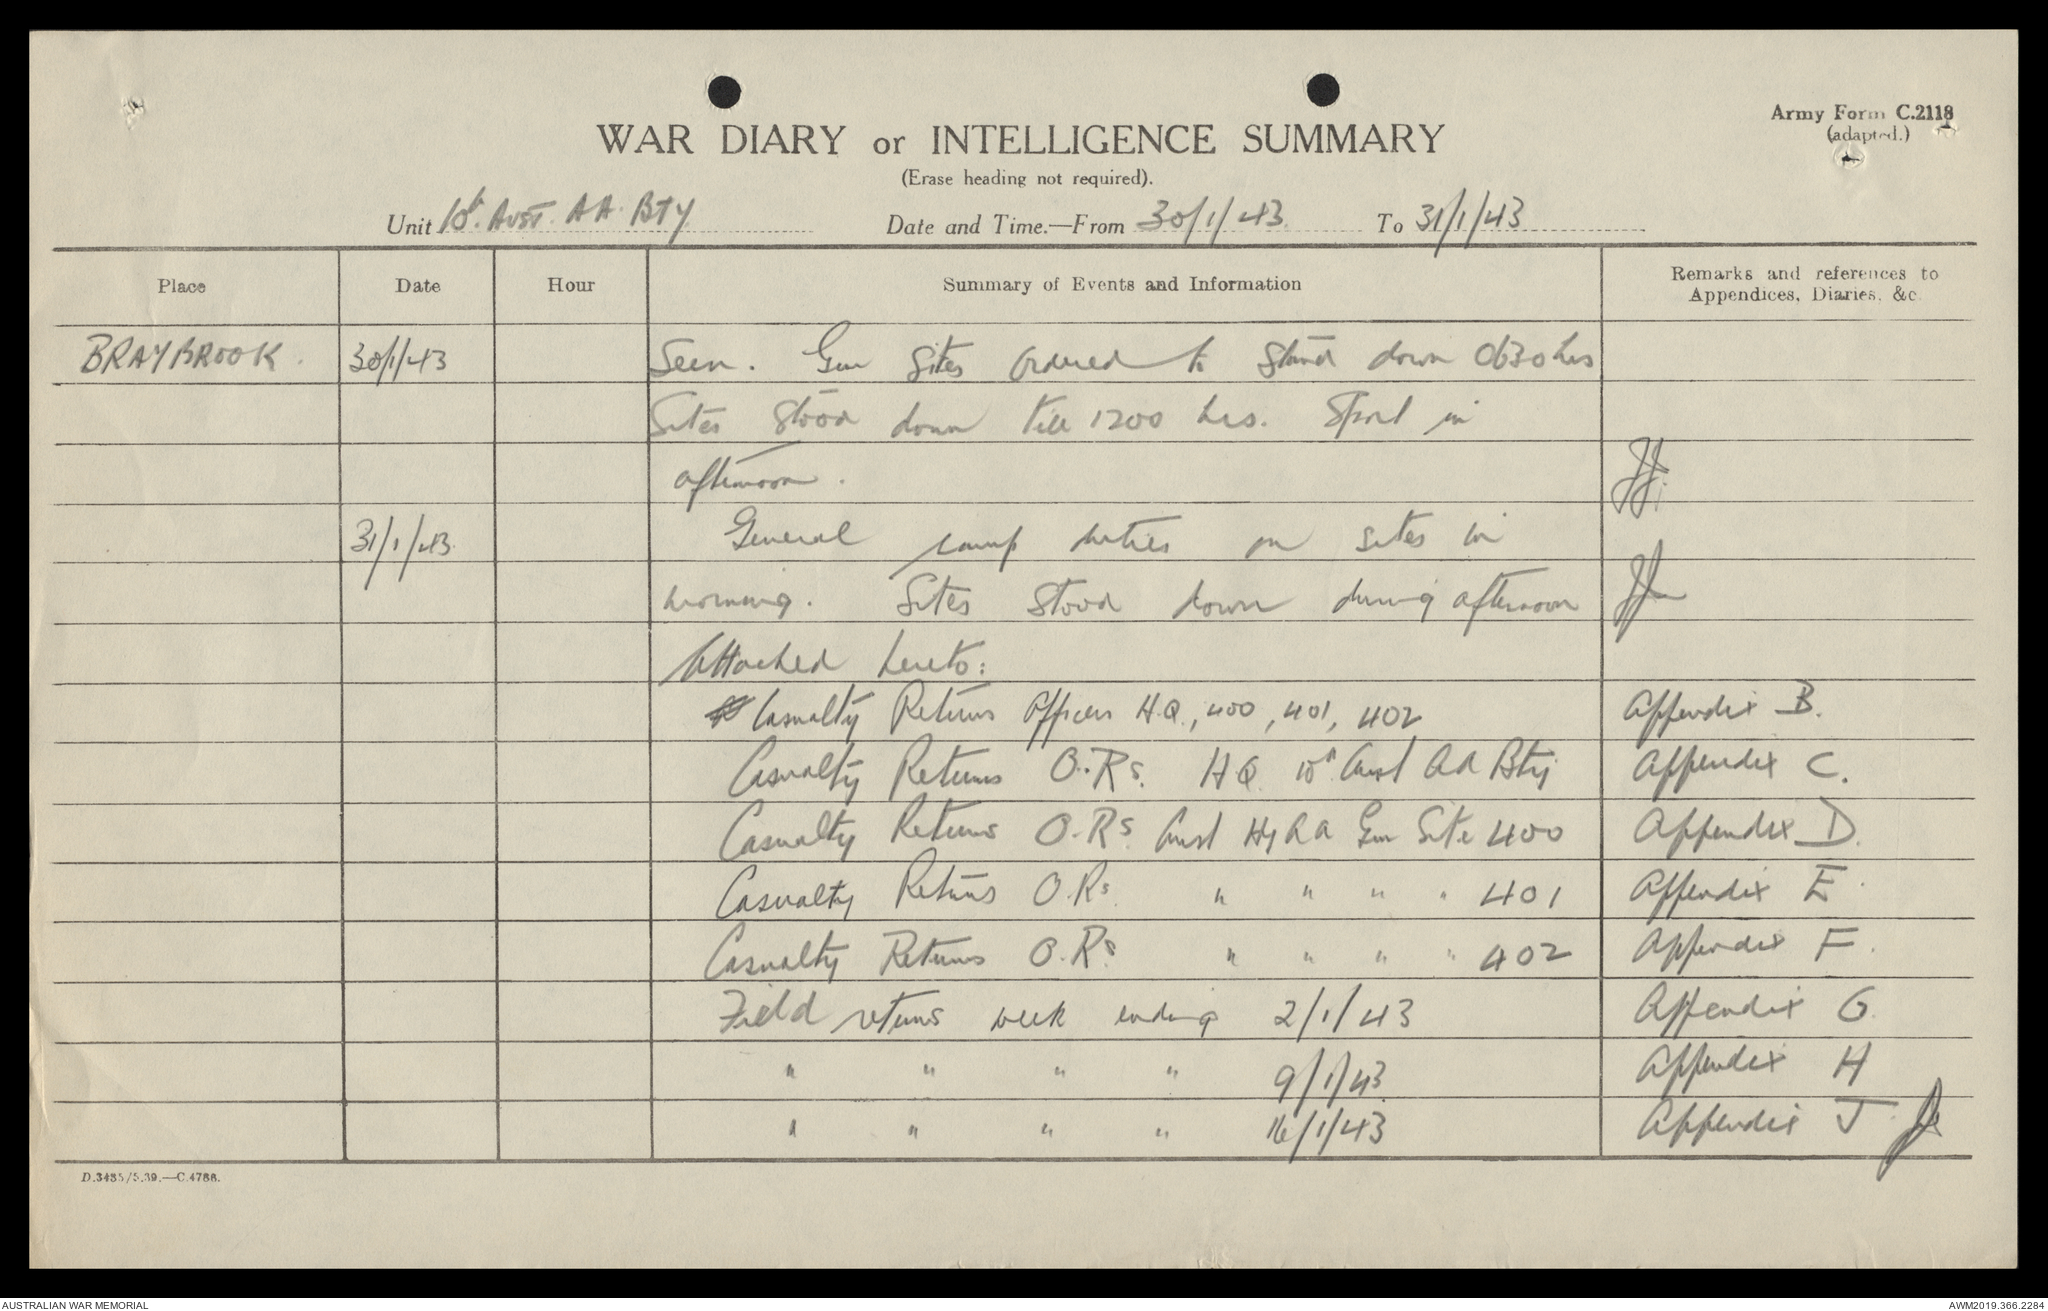 Army Form C.2118
(adapted.)
WAR DIARY or INTELLIGENCE SUMMARY
(Erase heading not required).
Unit 10th. AUST. AA. BTY. Date and Time.—From 30/1/43. To 31/1/43
Place Date Hour Summary of Events and Information Remarks and references to Appendices, Diaries, &c.
BRAYBROOK. 30/1/43 Seen. Gun Sites ordered to stand down 0630 hrs
Sites stood down till 1200 hrs. Sport in
afternoon.
31/1/43 General camp duties on sites in
morning. Sites stood down during afternoon
Attached hereto:
Casualty Returns Officers H.Q., 400, 401, 402 Appendix B.
Casualty Returns O.Rs. HQ. 10th Aust AA Bty Appendix C.
Casualty Returns O.Rs. Aust Hy AA Gun Site 400 Appendix D.
Casualty Returns O.Rs. " " " " 401 Appendix E.
Casualty Returns O.Rs " " " " 402 Appendix F.
Field returns week ending 2/1/43 Appendix G.
" " " " 9/1/43. Appendix H
" " " " 16/1/43 Appendix J
D.3485/5.39.—C.4788.
AUSTRALIAN WAR MEMORIAL AWM2019.366.2284